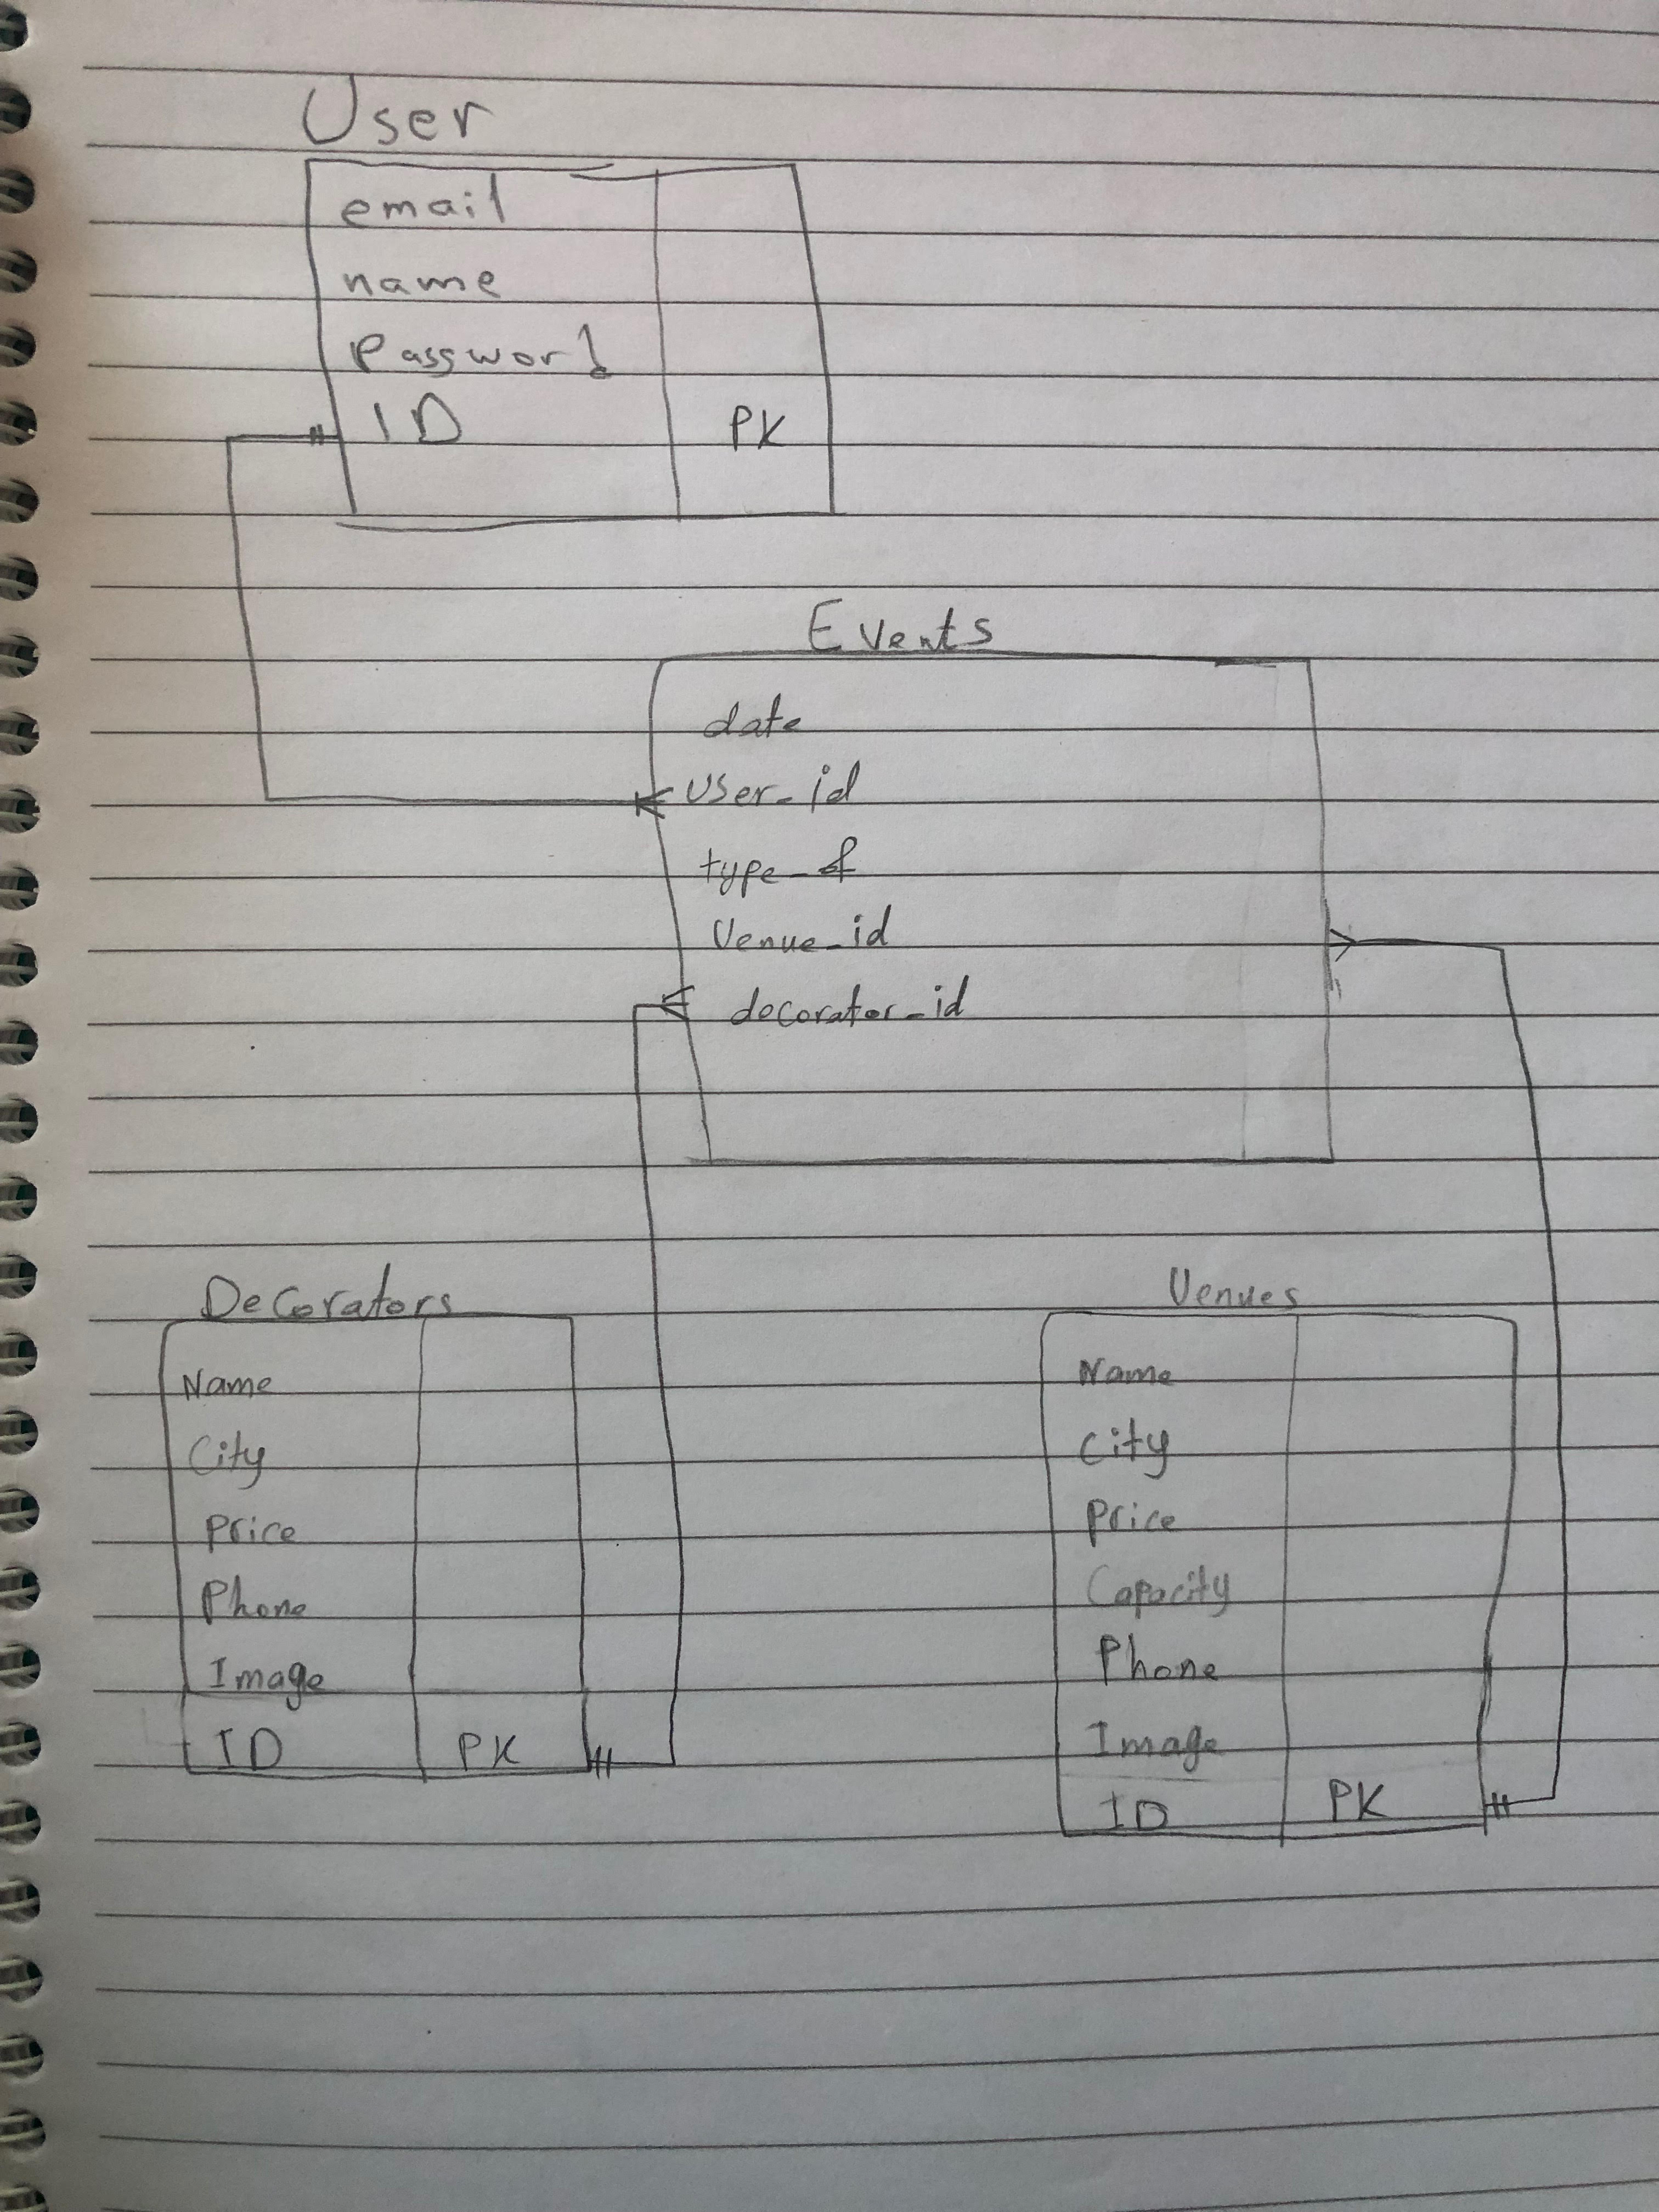 User
email
name
Password
ID PK
Events
date
user_id
type_of
Venue_id
decorator_id
Decorators
Name
City
Price
Phone
Image
ID PK
Venues
Name
City
Price
Capacity
Phone
Image
ID PK